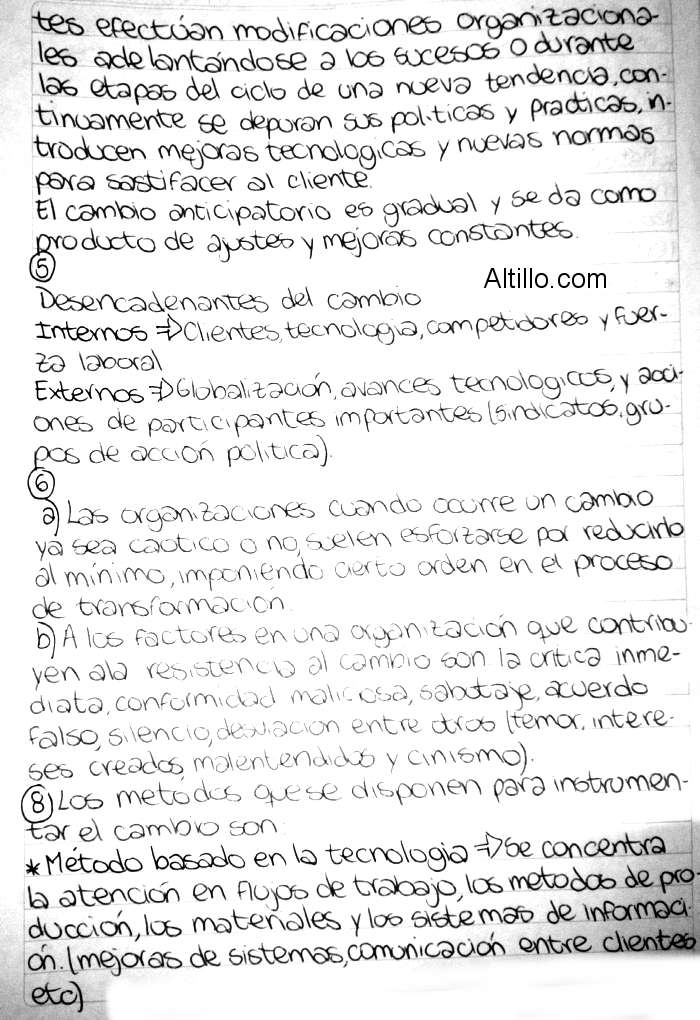 tes efectúan modificaciones organizaciona-
les adelantándose a los sucesos o durante
las etapas del ciclo de una nueva tendencia, con-
tinuamente se depuran sus politicas y practicas, in-
troducen mejoras tecnologicas y nuevas normas
para sastifacer al cliente.
El cambio anticipatorio es gradual y se da como
producto de ajustes y mejoras constantes.
5
Altillo.com
Desencadenantes del cambio
Internos => Clientes, tecnologia, competidores y fuer-
za laboral
Externos => Globalización, avances tecnologicos, y acci-
ones de participantes importantes (sindicatos, gru-
pos de acción política).
6
a) Las organizaciones cuando ocurre un cambio
ya sea caotico o no, suelen esforzarse por reducirlo
al mínimo, imponiendo cierto orden en el proceso
de transformación.
b) A los factores en una organización que contribu-
yen ala resistencia al cambio son la critica inme-
diata, conformidad maliciosa, sabotaje, acuerdo
falso, silencio, desviacion entre otros (temor, intere-
ses creados, malentendidos y cinismo).
8) Los metodos que se disponen para instrumen-
tar el cambio son:
* Método basado en la tecnologia => Se concentra
la atención en flujos de trabajo, los metodos de pro-
ducción, los materiales y los sistemas de informaci-
ón. (mejoras de sistemas, comunicación entre clientes
etc)